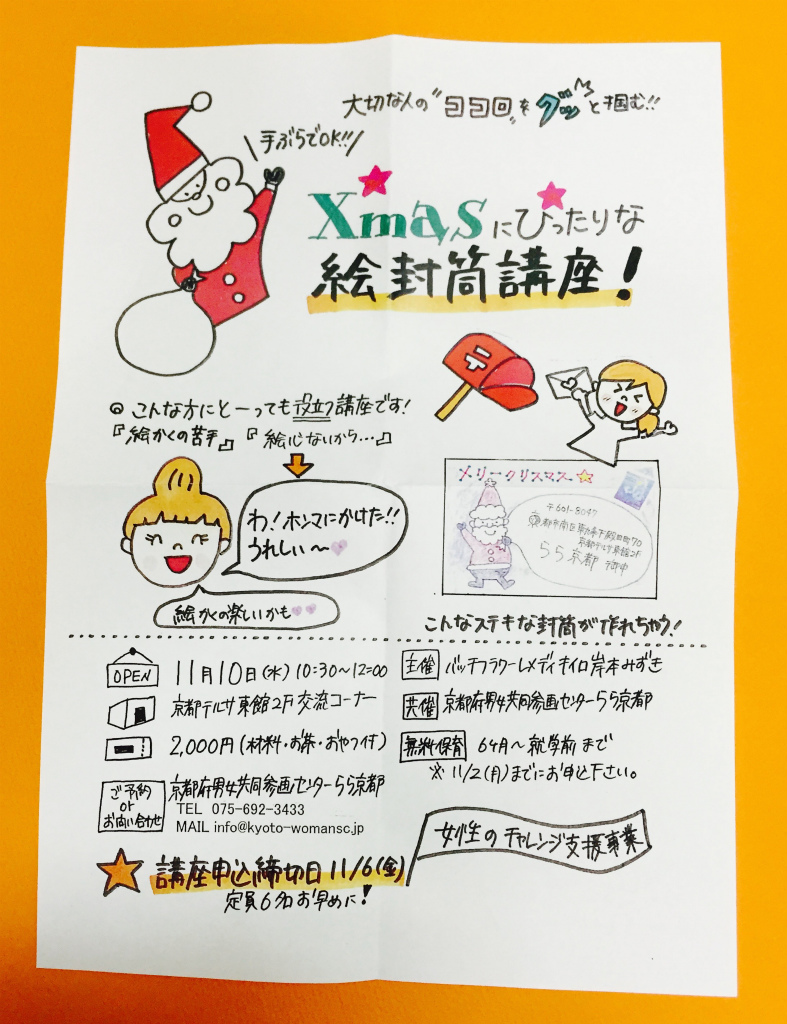 大切な人の"ココロ"をグッと掴む!!
手ぶらでOK!!
Xmasにぴったりな
絵封筒講座!
◎こんな方にとーっても役立つ講座です!
『絵かくの苦手』『絵心ないから…』
わ!ホンマにかけた!!
うれしい〜
絵かくの楽しいかも
メリークリスマス
〒601-8047
京都市南区東九条下殿田町70
京都テルサ東館2F
らら京都 御中
こんなステキな封筒が作れちゃう!
OPEN 11月10日(水)10:30〜12:00
京都テルサ東館2F交流コーナー
2,000円(材料・お茶・おやつ付)
ご予約
or
お問い合わせ
京都府男女共同参画センターらら京都
TEL 075-692-3433
MAIL info@kyoto-womansc.jp
主催 バッチフラワーレメディキイロ岸本みずき
共催 京都府男女共同参画センターらら京都
無料保育 6ヶ月〜就学前まで
※11/2(月)までにお申込下さい。
女性のチャレンジ支援事業
講座申込締切日11/6(金)
定員6名お早めに!